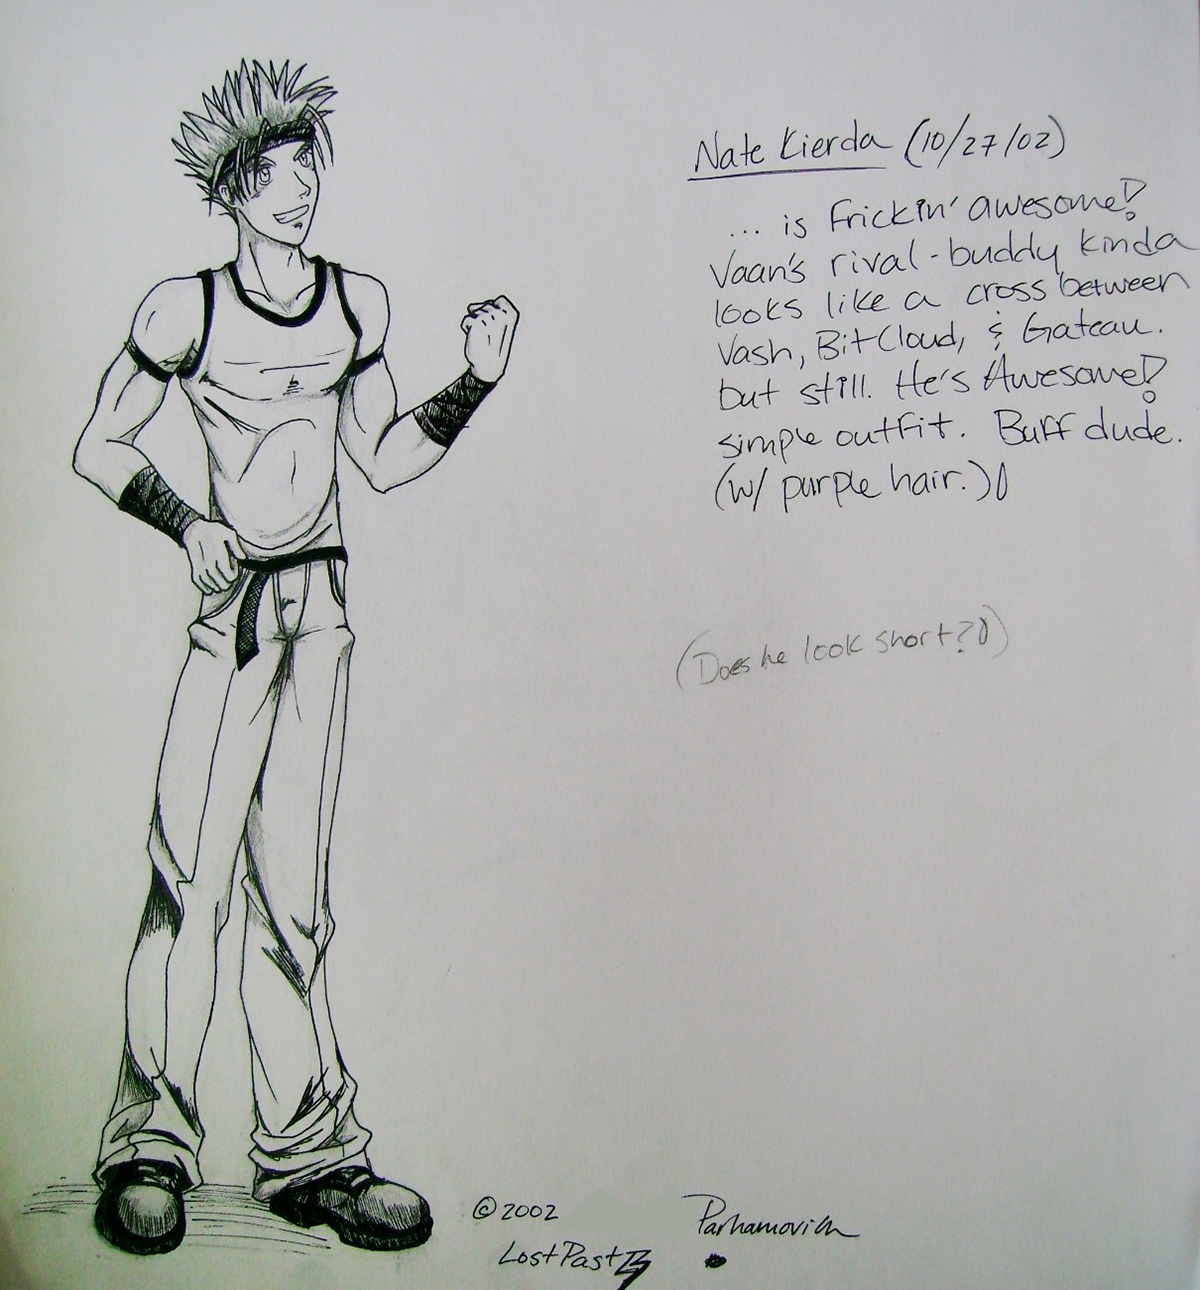 Nate Kierda (10/27/02)
... is frickin' awesome!
Vaan's rival-buddy kinda
looks like a cross between
Vash, Bit Cloud, & Gateau.
but still. He's Awesome!
simple outfit. Buff dude.
(w/ purple hair.)
(Does he look short?)
©2002 Parhamovich
LostPast